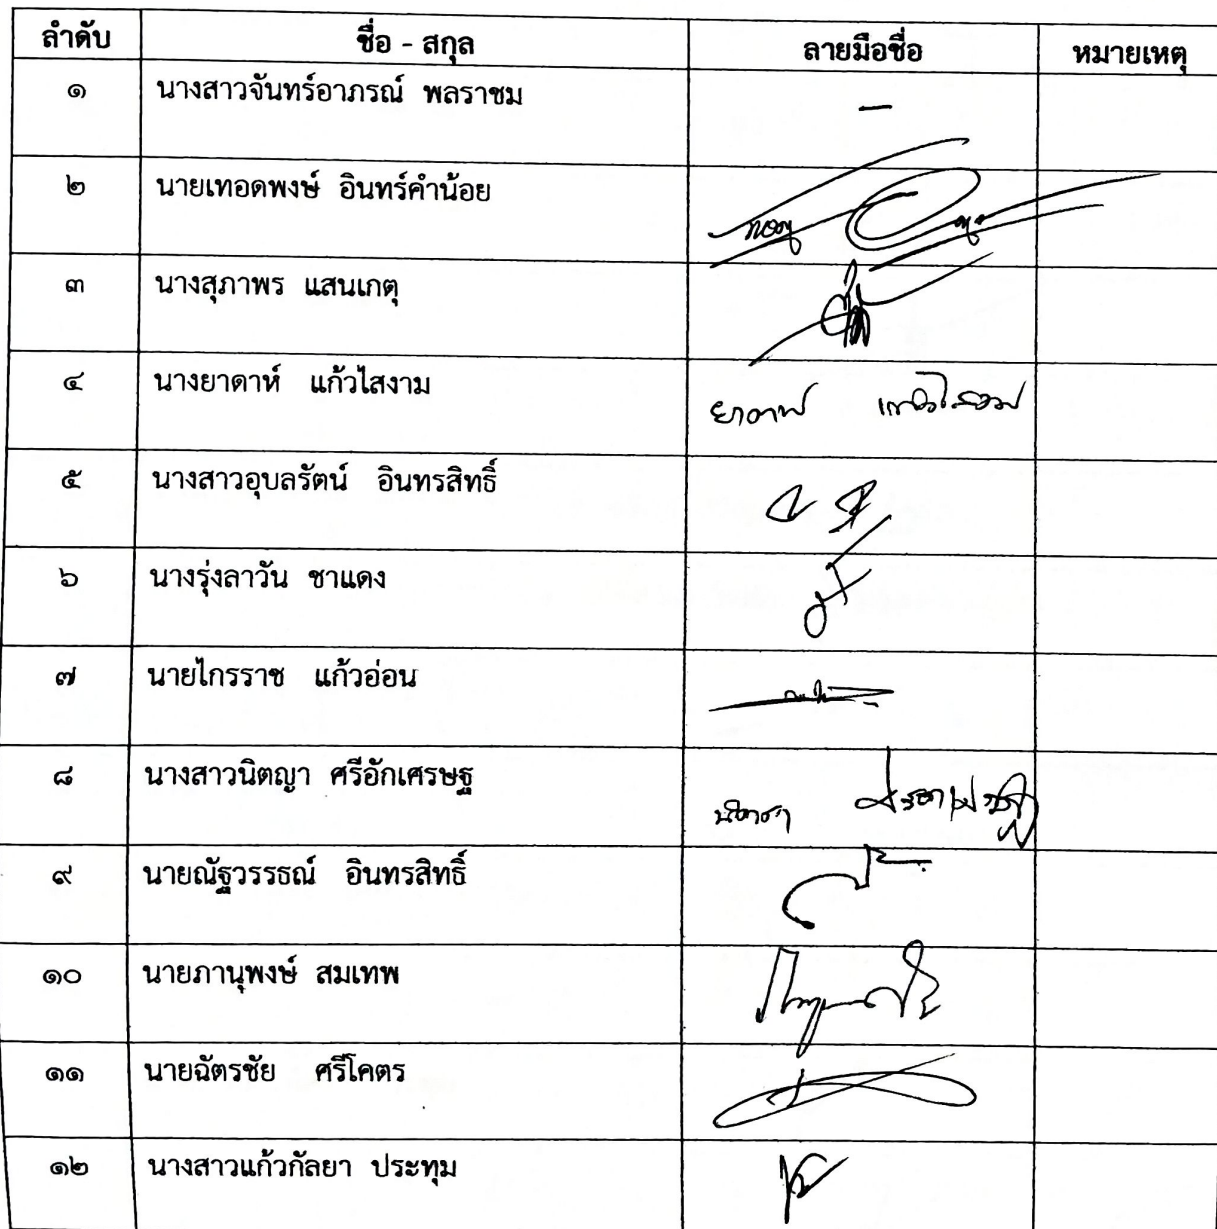 ลำดับ ชื่อ - สกุล ลายมือชื่อ หมายเหตุ
๑ นางสาวจันทร์อาภรณ์ พลราชม -
๒ นายเทอดพงษ์ อินทร์คำน้อย
๓ นางสุภาพร แสนเกตุ
๔ นางยาดาห์ แก้วไสงาม ยาดาห์ แก้วไสงาม
๕ นางสาวอุบลรัตน์ อินทรสิทธิ์
๖ นางรุ่งลาวัน ชาแดง
๗ นายไกรราช แก้วอ่อน
๘ นางสาวนิตญา ศรีอักเศรษฐ
๙ นายณัฐวรรธณ์ อินทรสิทธิ์
๑๐ นายภานุพงษ์ สมเทพ
๑๑ นายฉัตรชัย ศรีโคตร
๑๒ นางสาวแก้วกัลยา ประทุม